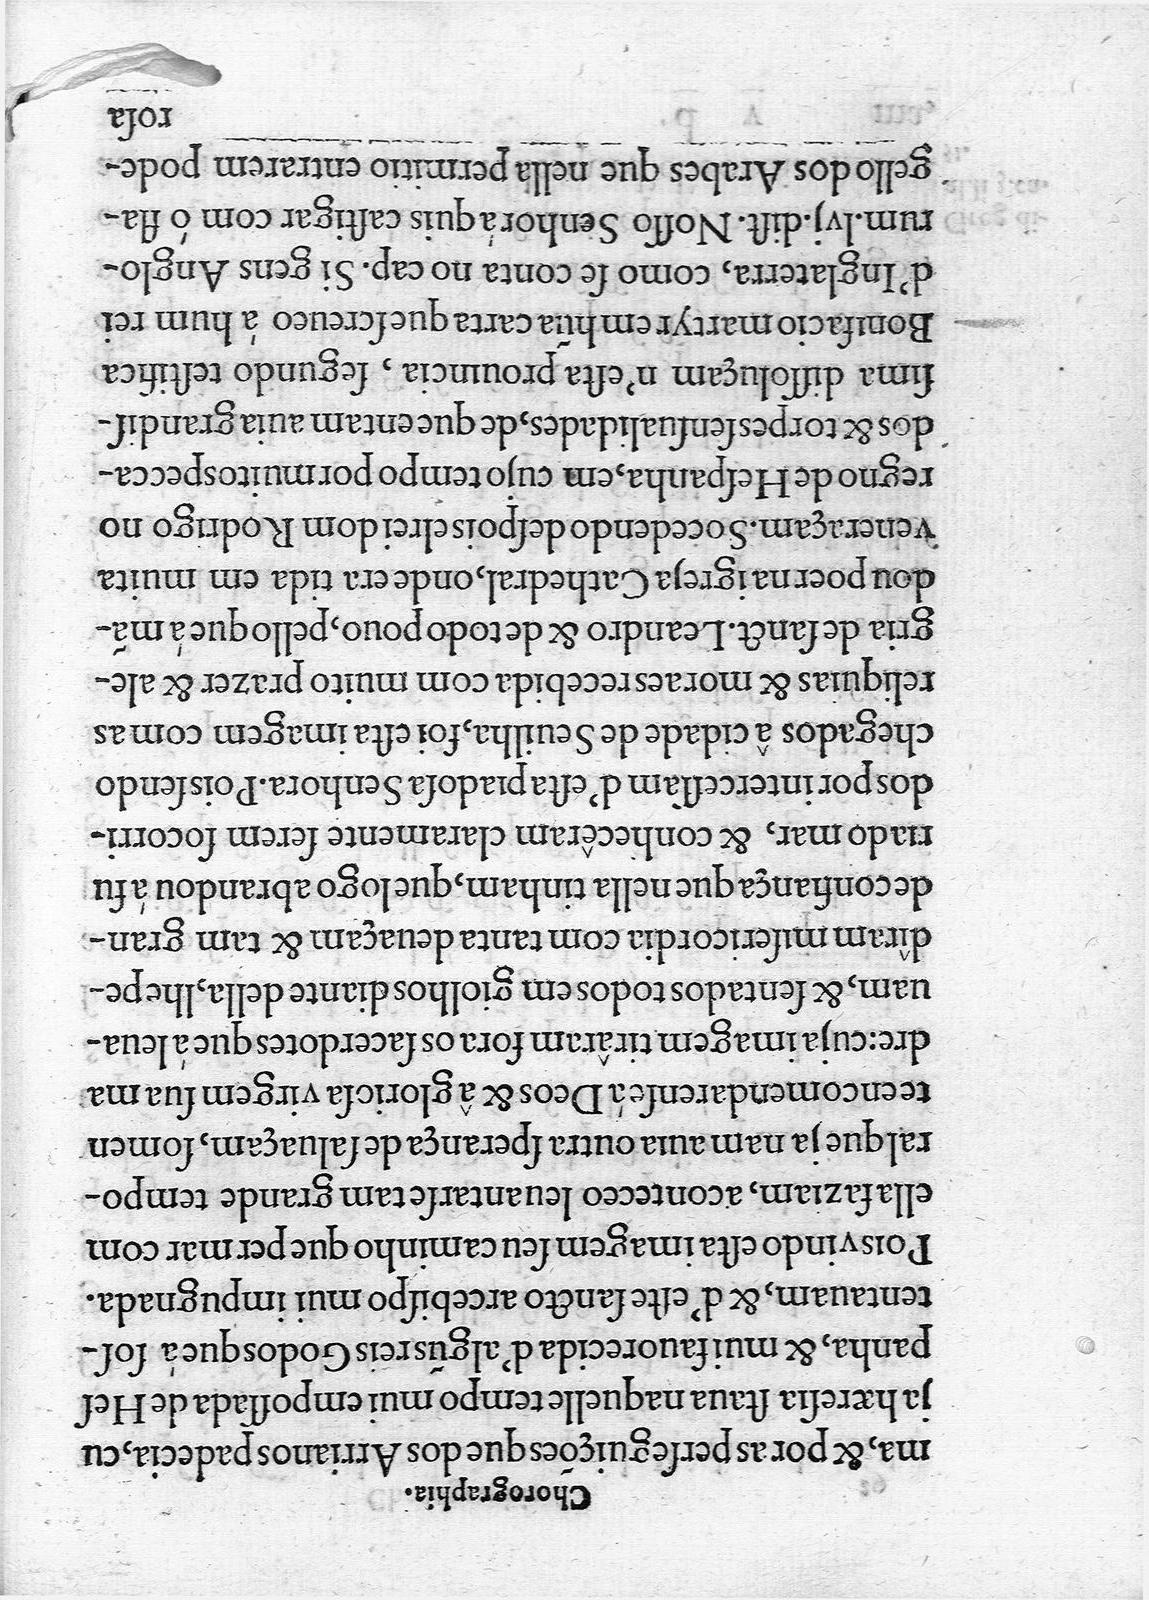 Chorographia.
ma, & por as perseguições que dos Arrianos padecia, cu
ja hæresia staua naquelle tempo mui empossada de Hes
panha, & mui fauorecida d'algũs reis Godos que á sos-
tentauam, & d'este sancto arcebispo mui impugnada.
Pois vindo esta imagem seu caminho que per mar com
ella faziam, aconteceo leuantarse tam grande tempo-
ral que ja nam auia outra sperança de saluaçam, somen
te encomendarense á Deos & â gloriosa virgem sua ma
dre: cuja imagem tirâram fora os sacerdotes que á leua-
uam, & sentados todos em giolhos diante della, lhe pe-
dîram misericordia com tanta deuaçam & tam gran-
de confiança que nella tinham, que logo abrandou á fu
ria do mar, & conhecêram claramente serem socorri-
dos por intercessam d'esta piadosa Senhora. Pois sendo
chegados â cidade de Seuilha, foi esta imagem com as
reliquias & moraes recebida com muito prazer & ale-
gria de sanct. Leandro & de todo pouo, pello que á mã-
dou poer na igreja Cathedral, onde era tida em muita
veneraçam. Socedendo despois elrei dom Rodrigo no
regno de Hespanha, em cujo tempo por muitos pecca-
dos & torpes sensualidades, de que entam auia grandis-
sima dissoluçam n'esta prouincia, segundo testifica
Bonifacio martyr em hũa carta que screueo á hum rei
d'Inglaterra, como se conta no cap. Si gens Anglo-
rum. lvj. dist. Nosso Senhor á quis castigar com ó fla-
gello dos Arabes que nella permitio entrarem pode-
rosa